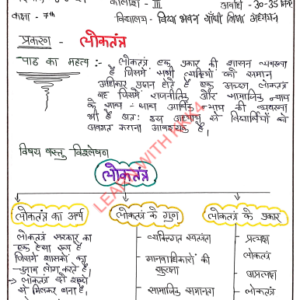 कालांश - III
अवधि - 30-35 मिनट
कक्षा - 7th
विद्यालय -
प्रकरण - लोकतंत्र
पाठ का महत्व :- लोकतंत्र एक प्रकार की शासन व्यवस्था
है जिसमें सभी व्यक्तियों को समान
अधिकार प्राप्त होते हैं एक अच्छा लोकतंत्र
वह जिसमें राजनीतिक और सामाजिक न्याय
के साथ - साथ आर्थिक न्याय की व्यवस्था
भी है अतः इस आधार से विद्यार्थियों को
अवगत कराना आवश्यक है।
विषय वस्तु विश्लेषण
लोकतंत्र
लोकतंत्र का अर्थ
लोकतंत्र के गुण
लोकतंत्र के प्रकार
लोकतंत्र सरकार का
एक ऐसा रूप है
जिसमें शासकों का
चुनाव लोग करते हैं।
लोकतंत्र दो शब्दों
से मिलकर बना है,
व्यक्तिगत स्वतंत्रता
मानवाधिकारों की
सुरक्षा
सामाजिक समानता
प्रत्यक्ष
लोकतंत्र
अप्रत्यक्ष
लोकतंत्र
LEARN WITH